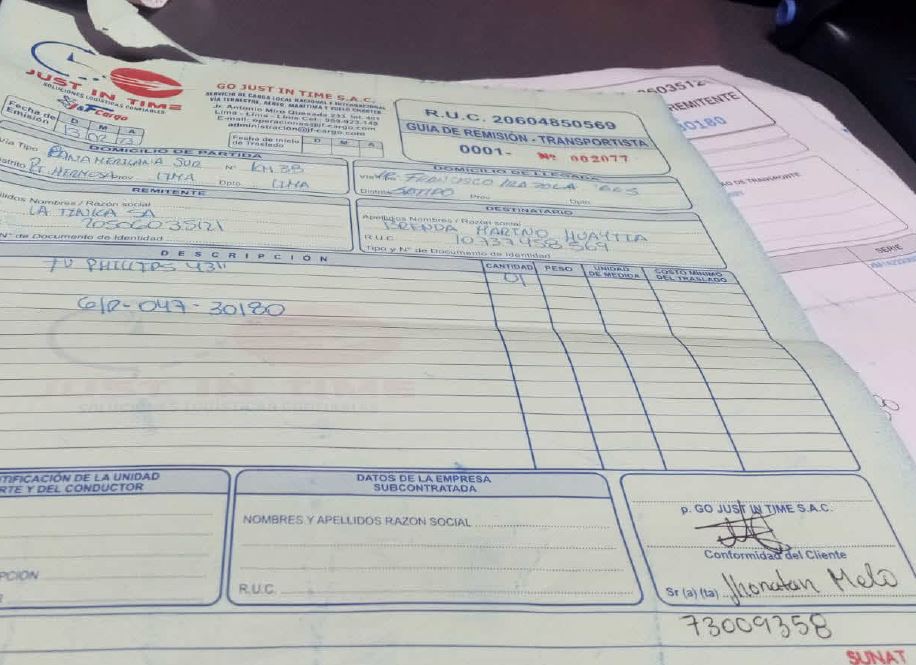 JUST IN TIME
SOLUCIONES LOGÍSTICAS CONFIABLES
Cargo
GO JUST IN TIME S.A.C.
SERVICIO DE CARGA LOCAL NACIONAL E INTERNACIONAL
VIA TERRESTRE, AEREO, MARITIMA Y FLUVIO CHARTER
Jr. Antonio Miro Quesada 233 Int. 401
Lima - Lima - Lima Cel: 969 423 149
R.U.C. 20604850569
GUIA DE REMISIÓN - TRANSPORTISTA
0001- Nº 002077
Fecha de Emisión D M A
13 02 23
Fecha de Inicio de Traslado D M A
DOMICILIO DE PARTIDA
Vía Tipo PANAMERICANA SUR Nº KM.38
Distrito Pt. HERMOSA Prov. LIMA Dpto. LIMA
DOMICILIO DE LLEGADA
Vía FRANCISCO IRAZOLA
Distrito SATIPO Prov. Dpto.
REMITENTE
Apellidos Nombres / Razón social
LA TINKA SA
20506035121
Nº de Documento de Identidad
DESTINATARIO
Apellidos Nombres / Razón social
BRENDA MARINO HUAYTTA
R.U.C. 10737458569
Tipo y Nº de Documento de Identidad
DESCRIPCIÓN CANTIDAD PESO UNIDAD DE MEDIDA COSTO MINIMO DEL TRASLADO
TV PHILIPS 43" 01
G/R-047-30180
JUST IN TIME
SOLUCIONES LOGÍSTICAS CONFIABLES
TIFICACIÓN DE LA UNIDAD
RTE Y DEL CONDUCTOR
PCION
DATOS DE LA EMPRESA
SUBCONTRATADA
NOMBRES Y APELLIDOS RAZON SOCIAL
R.U.C.
p. GO JUST IN TIME S.A.C.
Conformidad del Cliente
Sr (a) (ta) Jhonatan Melo
73009358
SUNAT
REMITENTE
0180
DE TRANSPORTE
SERIE